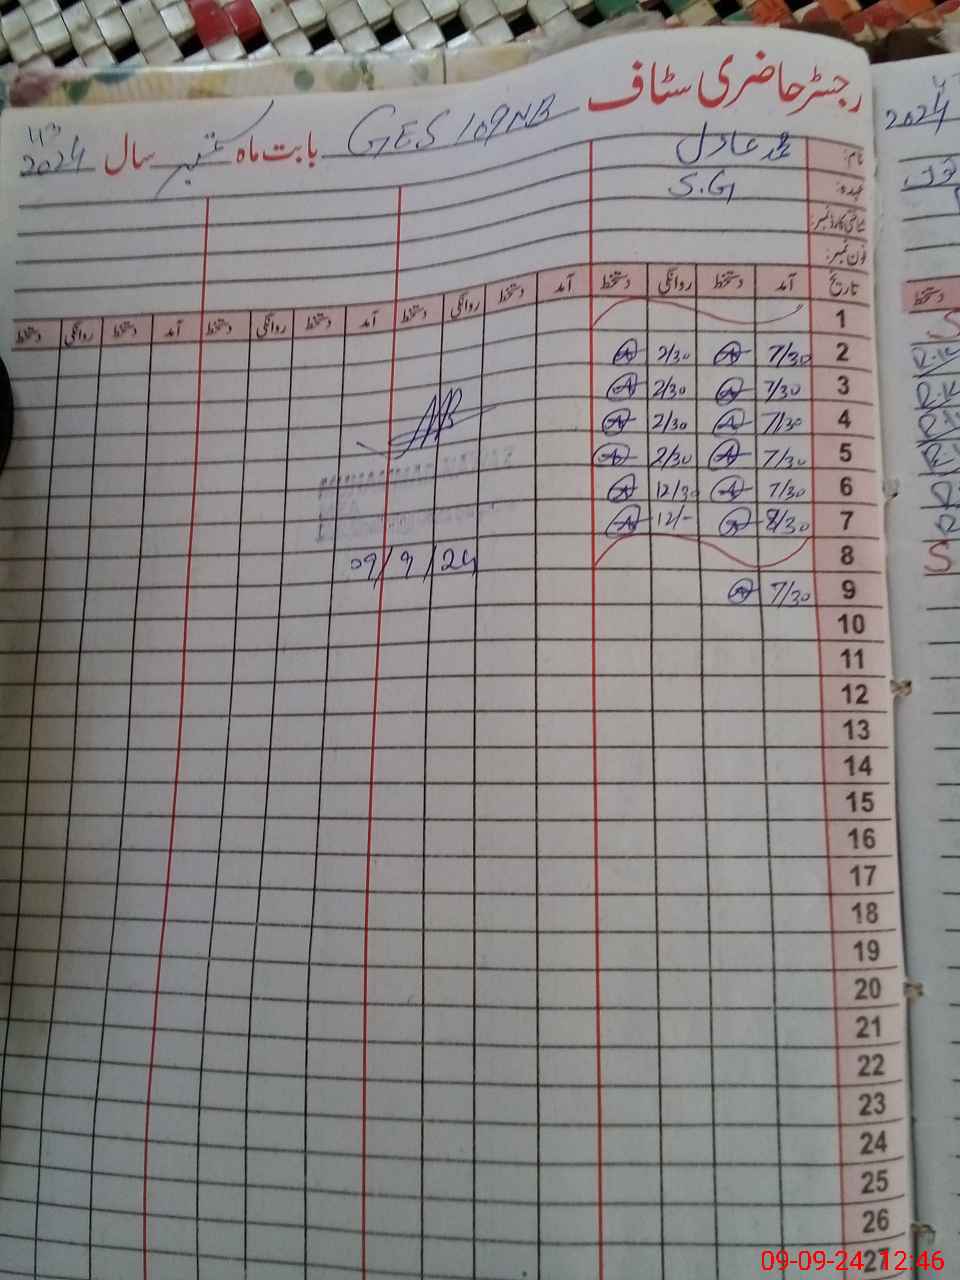 رجسٹر حاضری سٹاف
GES 109NB بابت ماہ ستمبر سال 2024
نام: محمد عادل
عہدہ: S.G
شناختی کارڈ نمبر:
فون نمبر:
تاریخ آمد دستخط روانگی دستخط آمد دستخط روانگی دستخط آمد دستخط روانگی دستخط آمد دستخط روانگی دستخط
1
2 7/30 2/30
3 7/30 2/30
4 7/30 2/30
5 7/30 2/30
6 7/30 12/30
7 8/30 12/-
8
09/9/24
9 7/30
10
11
12
13
14
15
16
17
18
19
20
21
22
23
24
25
26
27
2024
دستخط
S
R.K
R.K
S
09-09-24 12:46